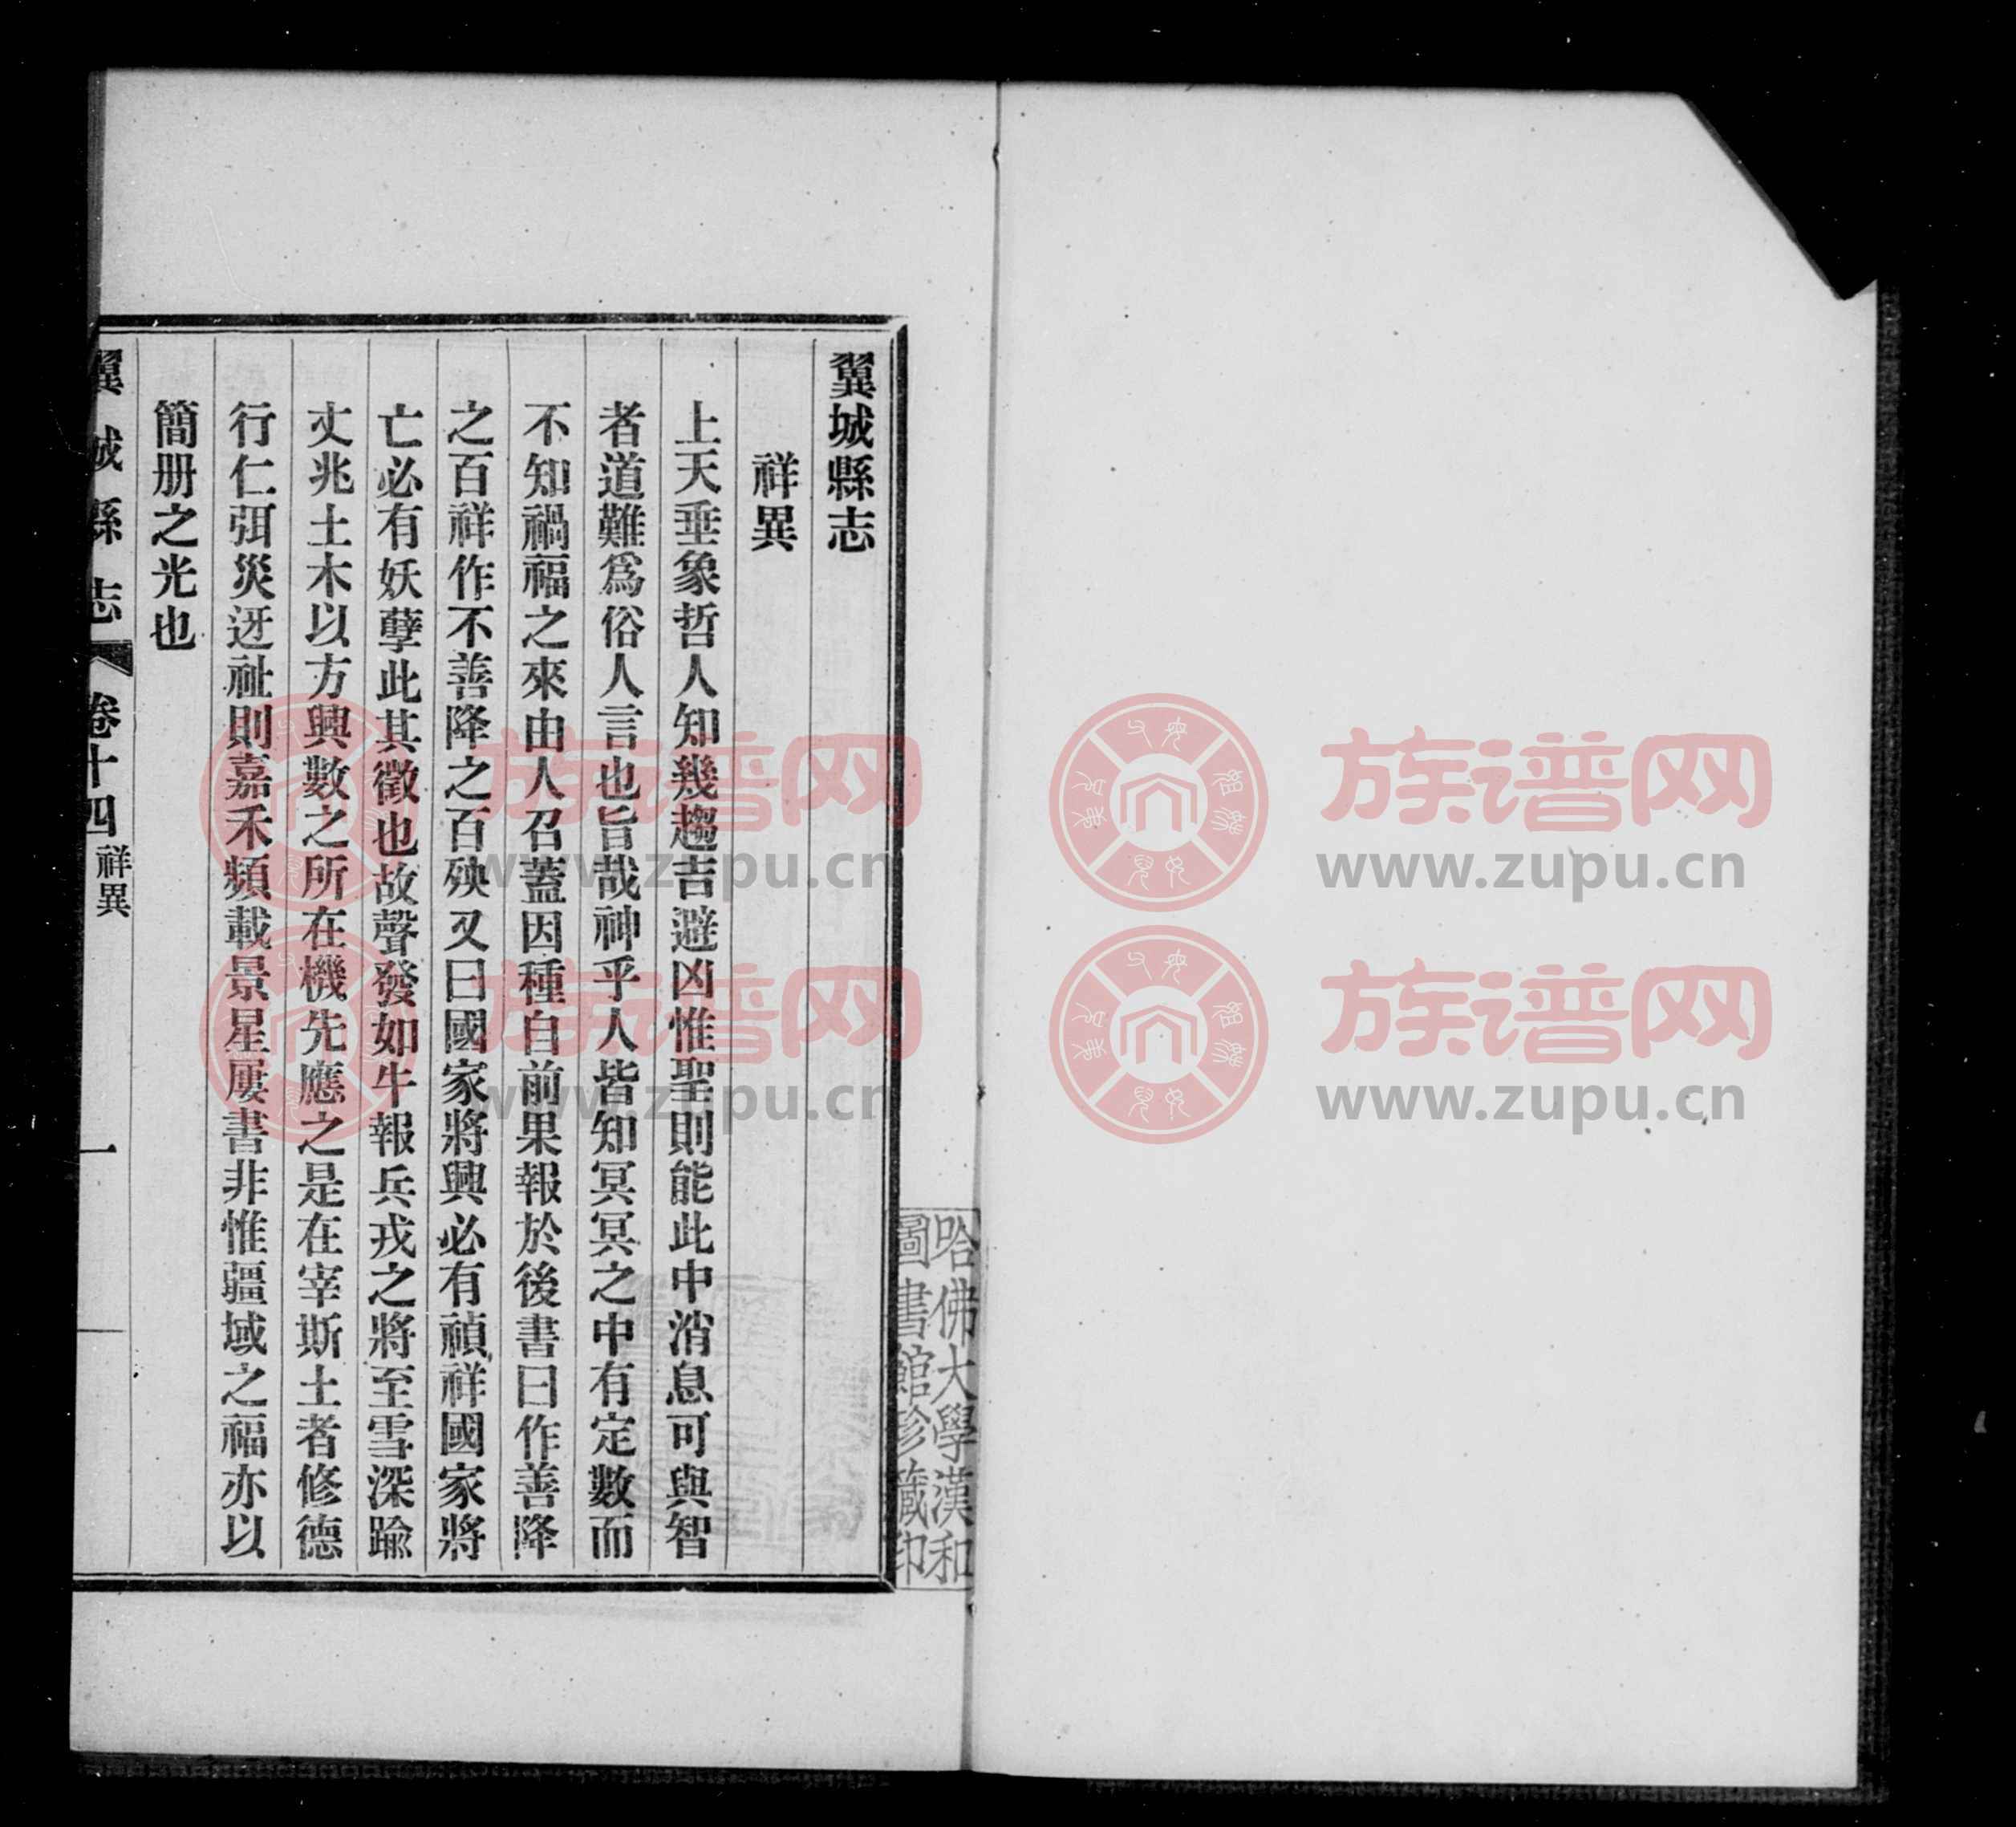 翼城縣志
祥異
上天垂象哲人知幾趨吉避凶惟聖則能此中消息可與智
者道難爲俗人言也旨哉神乎人皆知冥冥之中有定數而
不知禍福之來由人召蓋因種自前果報於後書曰作善降
之百祥作不善降之百殃又曰國家將興必有禎祥國家將
亡必有妖孽此其徵也故聲發如牛報兵戎之將至雪深踰
丈兆土木以方興數之所在機先應之是在宰斯土者修德
行仁弭災迓祉則嘉禾頻載景星屢書非惟疆域之福亦以
簡册之光也
翼城縣志 卷十四 祥異 一
哈佛大學漢和
圖書館珍藏印
族谱网
www.zupu.cn
族谱网
www.zupu.cn
族谱网
www.zupu.cn
族谱网
www.zupu.cn